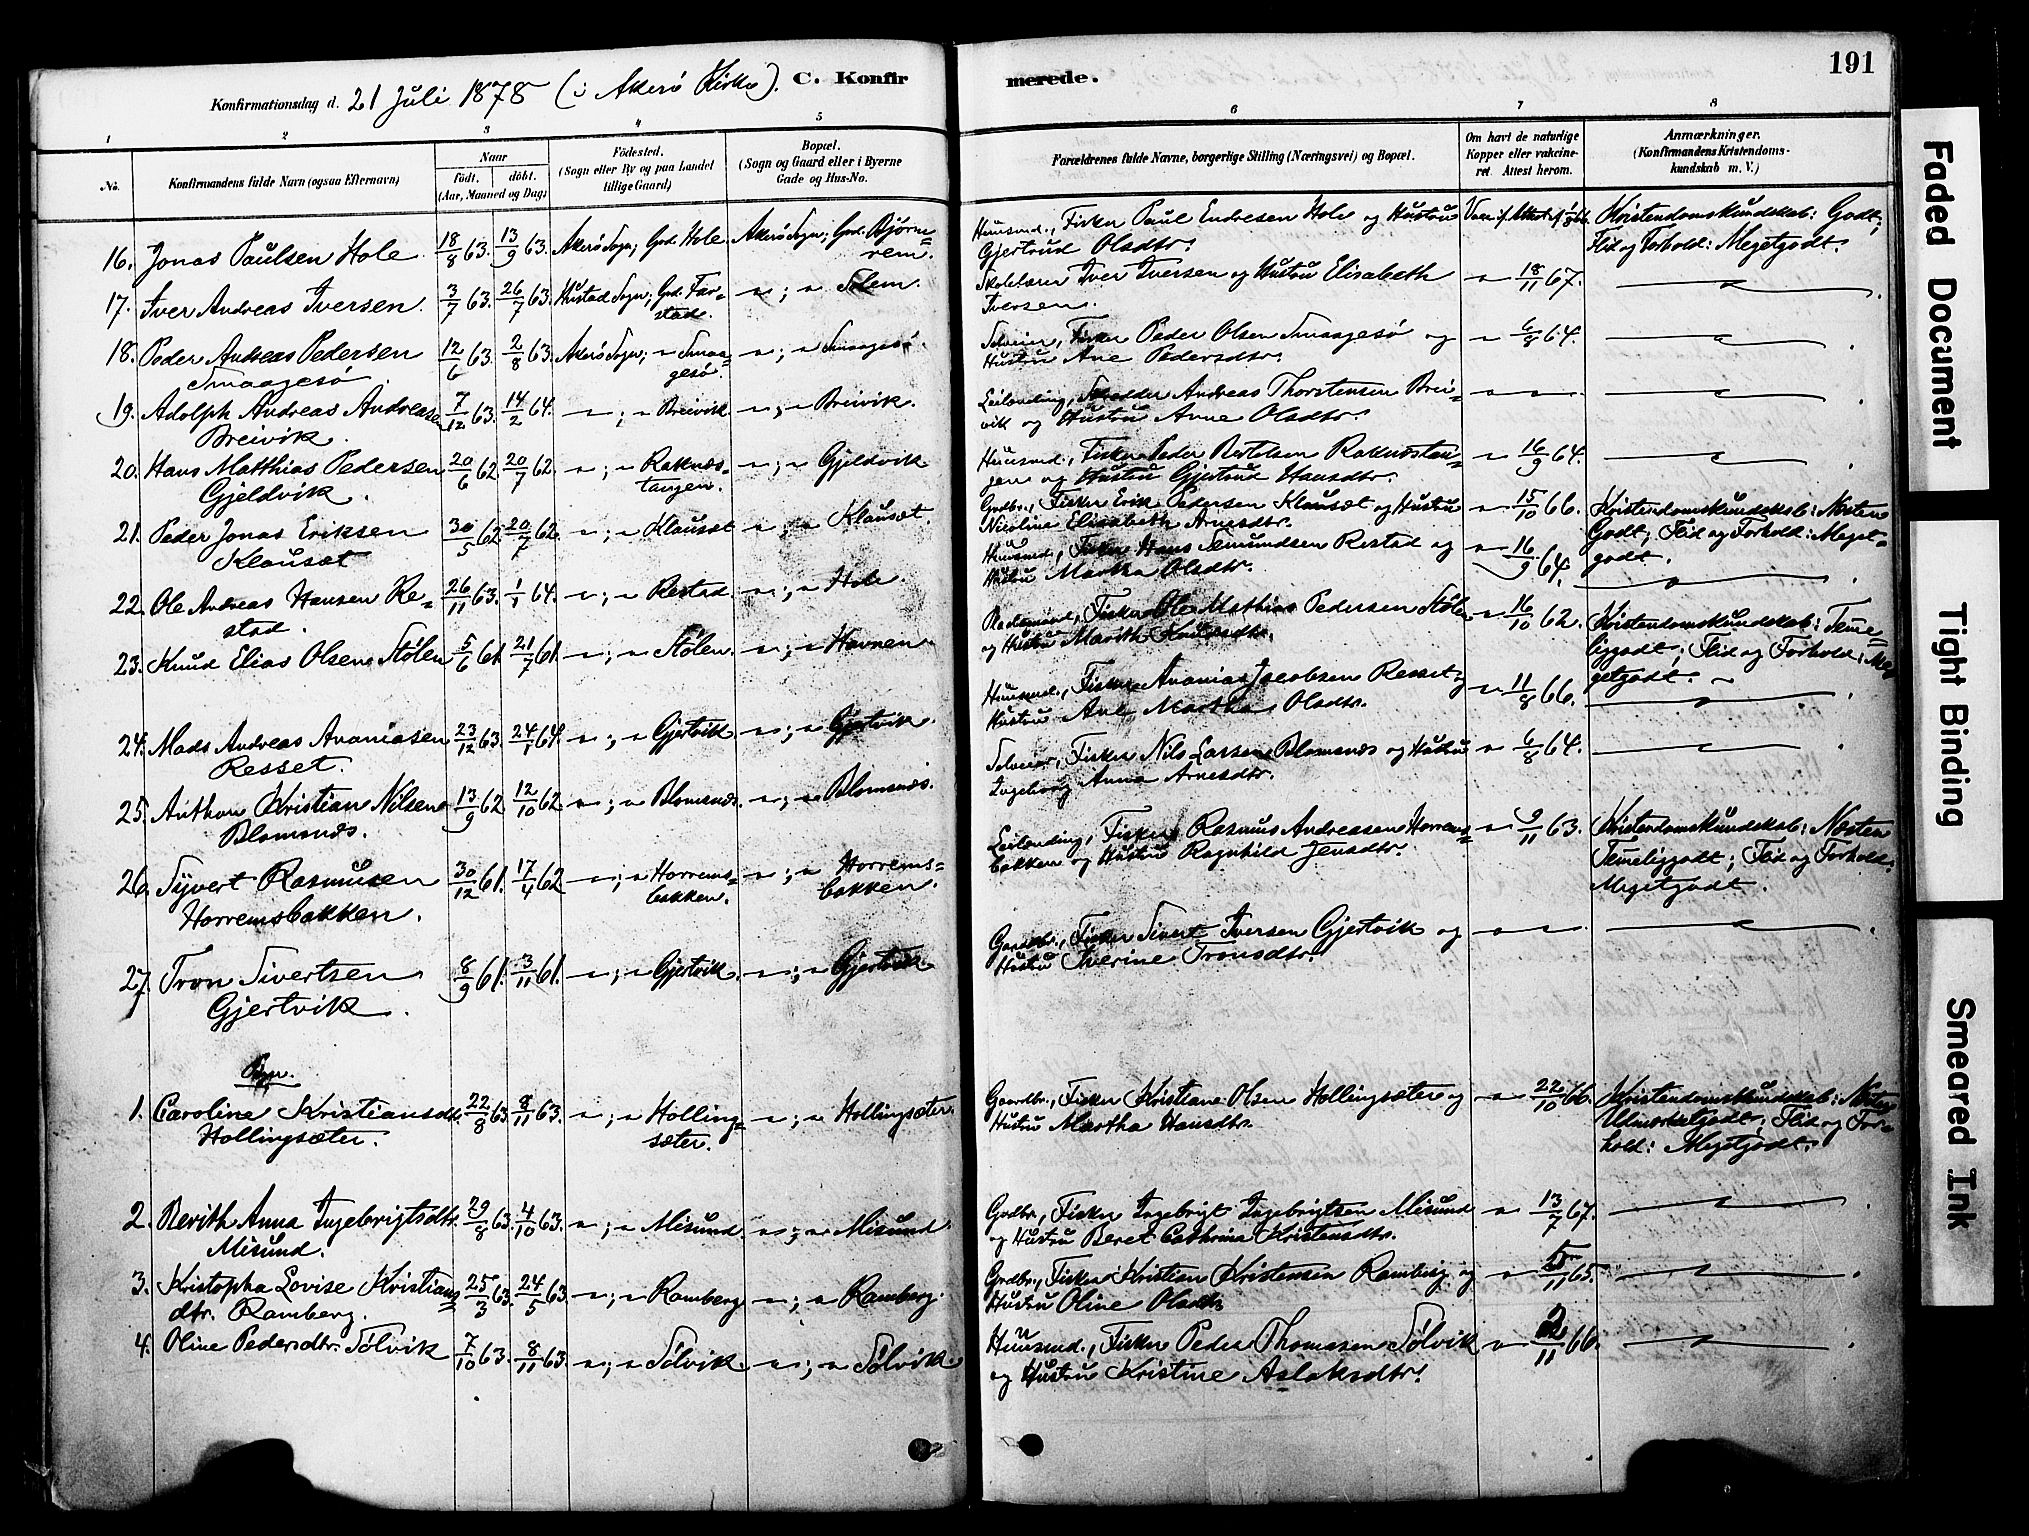 191
C. Konfirmerede.
Konfirmationsdag d. 21 Juli 1878 (i Akerø Kirke).
1 2 3 4 5 6 7 8
No.
Konfirmandens fulde Navn (ogsaa Efternavn)
Naar
födt. döbt.
(Aar, Maaned og Dag)
Födested.
(Sogn eller By og paa Landet
tillige Gaard)
Bopæl.
(Sogn og Gaard eller i Byerne
Gade og Hus-No.
Forældrenes fulde Navne, borgerlige Stilling (Næringsvei) og Bopæl.
Om havt de naturlige
Kopper eller vakcine-
ret. Attest herom.
Anmærkninger.
(Konfirmandens Kristendoms-
kundskab m. V.)
16. Jonas Paulsen Hole 18/8 63. 13/9 63. Akerø Sogn; Grd. Hole Akerø Sogn; Grd. Bjørne=
rem.
Huusmd., Fisker Paul Endresen Hole og Hustru
Gjertrud Olsdtr.
Kristendomskundskab: Godt;
Flid og Forhold: Megetgodt.
17. Iver Andreas Iversen. 3/7 63. 26/7 63. Hustad Sogn; Grd. Far=
stad. " ; " Solem
Skolelærer Iver Iversen og Hustru Elisabeth
Iversen. " 18/11 67.
18. Peder Andreas Pedersen
Smaagesø. 12/6 63. 2/8 63. Akerø Sogn; " Smaa=
gesø. " ; " Smaagesø.
Selveier, Fisker Peder Olsen Smaagesø og
Hustru Ane Pedersdtr. " 6/8 64.
19. Adolph Andreas Andreasen
Breivik. 7/12 63. 14/2 64. " ; " Breivik " ; " Breivik.
Leilending, Andreas Thorstensen Brei=
vik og Hustru Anne Olsdtr. " "
20. Hans Matthias Pedersen
Gjeldvik. 20/6 62. 20/7 62. " ; " Raknæs=
tangen. " ; " Gjeldvik
Huusmd., Fisker Peder Bertelsen Raknæstan=
gen og Hustru Gjertrud Hansdtr. " 16/9 64.
21. Peder Jonas Eriksen
Klausæt 30/5 62. 20/7 62. " ; " Klausæt " ; " Klausæt.
Grdbr., Fisker Erik Pedersen Klausæt og Hustru
Nicolina Elisabeth Arnesdtr. " 15/10 66.
Kristendomskundskab: Næsten
Godt; Flid og Forhold: Meget=
godt.
22. Ole Andreas Hansen Re=
stad. 26/11 63. 1/1 64. " ; " Restad " ; " Hole.
Huusmd., Fisker Hans Semundsen Restad og
Hustru Martha Olsdtr. " 16/9 64.
23. Knud Elias Olsen Stølen 5/6 61. 21/7 61. " ; " Stølen. " ; " Havnen
Fisker Ole Mathias Pedersen Stølen
og Hustru Marith Knudsdtr. " 16/10 62.
Kristendomskundskab: Teme=
liggodt; Flid og Forhold: Me=
getgodt.
24. Mads Andreas Ananiasen
Resset. 23/12 63. 24/1 64. " ; " Gjertvik " ; " Gjertvik.
Huusmd., Fisker Ananias Jacobsen Resset og
Hustru Ane Martha Olsdtr. " 11/8 66.
25. Anthon Kristian Nilsen
Blomsnæs. 13/9 62. 12/10 62. " ; " Blomsnæs. " ; " Blomsnæs.
Selveier, Fisker Nils Larsen Blomsnæs og Hustru
Ingeborg Anna Arnesdtr. " 6/8 64.
26. Syvert Rasmusen
Horremsbakken. 30/12 61. 17/4 62. " ; " Horrems=
bakken. " ; " Horrems=
bakken.
Leilending, Fisker Rasmus Andreasen Horrems=
bakken og Hustru Ragnhild Jensdtr. " 9/11 63.
Kristendomskundskab: Næsten
Temeliggodt; Flid og Forhold:
Megetgodt.
27. Tron Sivertsen
Gjertvik. 8/9 61. 3/11 61. " ; " Gjertvik. " ; " Gjertvik
Gaardbr., Fisker Sivert Iversen Gjertvik og
Hustru Iverine Tronsdtr. " "
1. Caroline Kristiansdtr.
Hollingsæter. 22/8 63. 8/11 63. " ; " Holling=
sæter. " ; " Hollingsæter.
Gaardbr., Fisker Kristiane Olsen Hollingsæter og
Hustru Martha Hansdtr. " 22/10 66.
Kristendomskundskab: Næsten
Udmærketgodt; Flid og For=
hold: Megetgodt.
2. Berith Anna Ingebrigtsdtr.
Misund. 29/8 63. 4/10 63. " ; " Misund. " ; " Misund.
Grdbr., Fisker Ingebrigt Ingebrigtsen Misund
og Hustru Beret Cathrina Kristensdtr. " 13/7 67.
3. Kristopha Lovise Kristians=
dtr. Ramberg. 25/3 63. 24/5 63. " ; " Ramberg " ; " Ramberg.
Grdbr., Fisker Kristian Kristensen Ramberg og
Hustru Oline Olsdtr. " 5/11 65.
4. Oline Pedersdtr. Sølvik 7/10 63. 8/11 63. " ; " Sølvik " ; " Sølvik
Huusmd., Fisker Peder Thomasen Sølvik
og Hustru Kristine Aslaksdtr. " 2/11 66.
Faded Document
Tight Binding
Smeared Ink